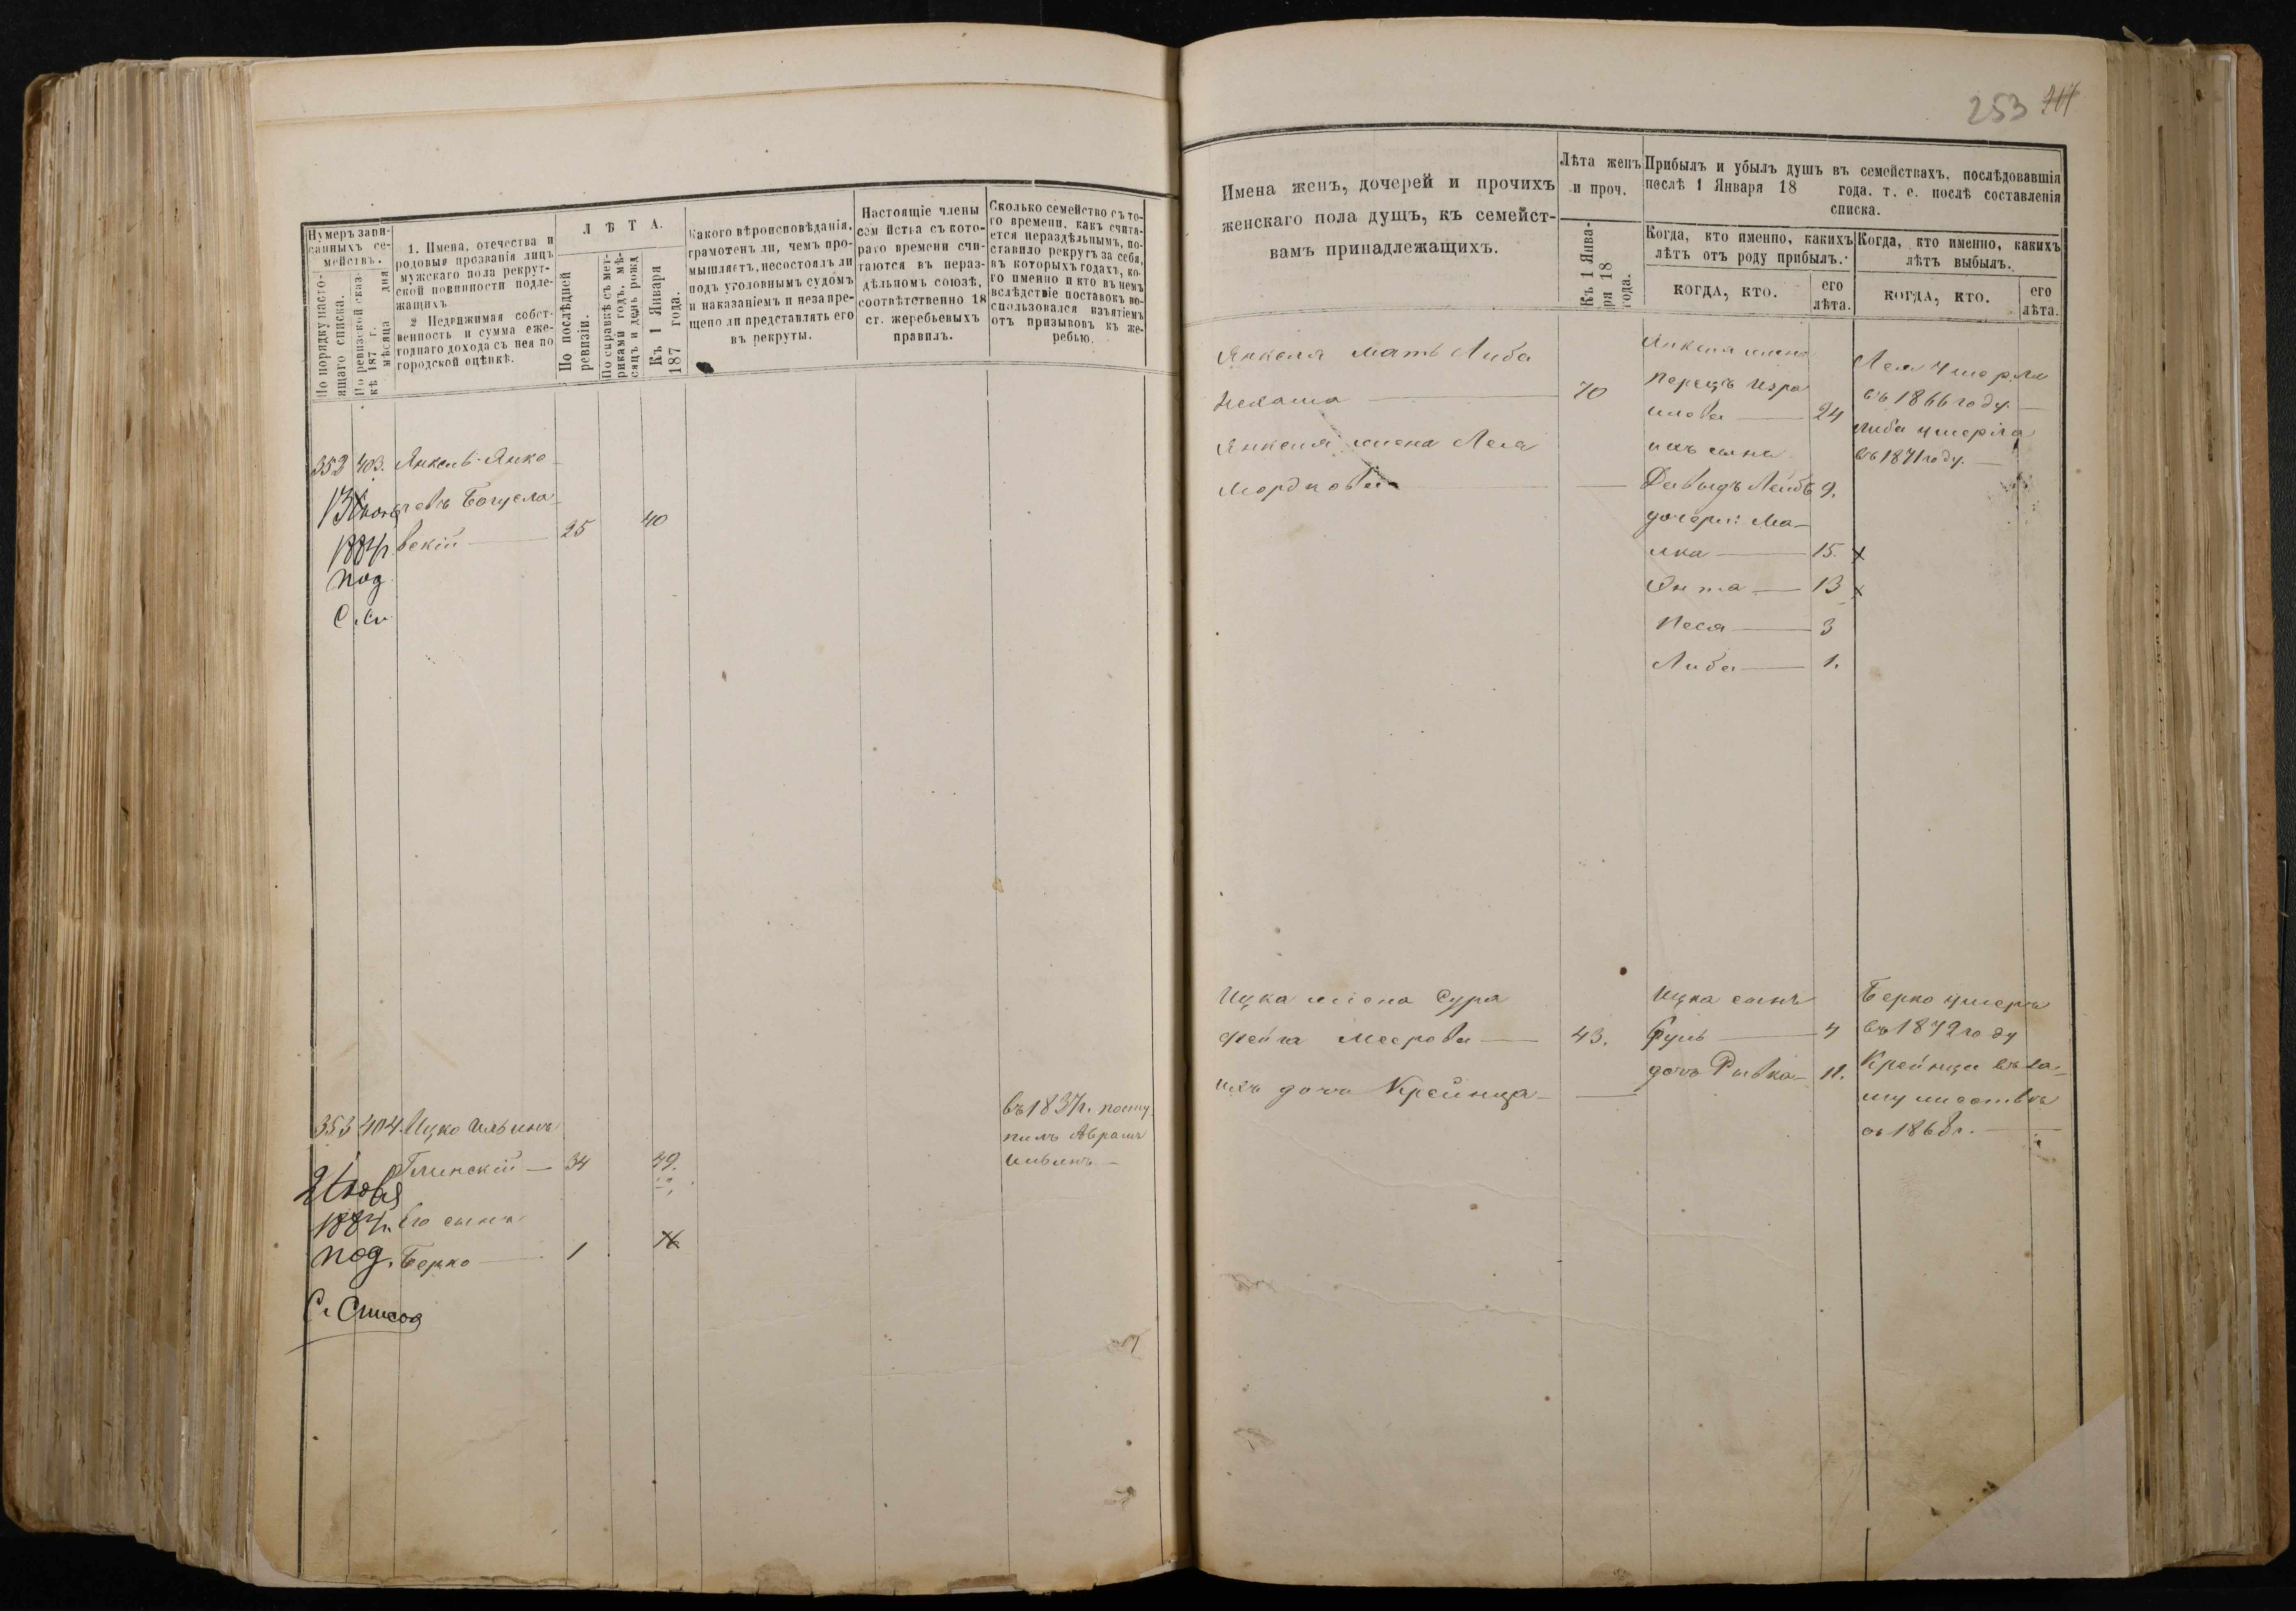 253
Нумеръ запи-
санныхъ се-
мействъ.
По порядку насто-
ящаго списка.
По ревизской сказ-
кѣ 187 г.
мѣсяца дня
1. Имена, отечества и
родовыя прозванія лицъ
мужскаго пола рекрут-
ской повинности подле-
жащихъ
2 Недвижимая собст-
венность и сумма еже-
годнаго дохода съ нея по
городской оцѣнкѣ.
ЛѢТА.
По послѣдней
ревизіи.
По справкѣ съ мет-
риками годъ, мѣ-
сяцъ и день рожд
Къ 1 Января
187 года.
Какого вѣроисповѣданія,
грамотенъ ли, чемъ про-
мышляетъ, несостоялъ ли
подъ уголовнымъ судомъ
и наказаніемъ и незапре-
щено ли представлять его
въ рекруты.
Настоящіе члены
сем йства съ кото-
раго времени счи-
таются въ нераз-
дѣльномъ союзѣ,
соотвѣтственно 18
ст. жеребьевыхъ
правилъ.
Сколько семейство съ то-
го времени, какъ счита-
ется нераздѣльнымъ, по-
ставило рекрутъ за себя,
въ которыхъ годахъ, ко-
го именно и кто въ немъ
вслѣдствіе поставокъ во-
спользовался изъятіемъ
отъ призывовъ къ же-
ребью.
352 403. Янкель Янке-
левъ Богусла-
вскій — 25 40
1884 г.
под
С. Сп
353 404 Ицко Ильинъ
Глинскій — 34 49.
1884 г. Его сынъ
под. Берко — 1 16
С. Списов
въ 1837 г. посту-
пилъ Абрамъ
Ильинъ —
Имена женъ, дочерей и прочихъ
женскаго пола душъ, къ семейст-
вамъ принадлежащихъ.
Лѣта женъ
и проч.
Къ 1 Янва-
ря 18
года.
Прибылъ и убылъ душъ въ семействахъ, послѣдовавшія
послѣ 1 Января 18 года. т. е. послѣ составленія
списка.
Когда, кто именно, какихъ
лѣтъ отъ роду прибылъ.
КОГДА, КТО.
его
лѣта.
Когда, кто именно, какихъ
лѣтъ выбылъ.
КОГДА, КТО.
его
лѣта.
Янкеля мать Либа
Нехама — 70
Янкеля жена Лея
Мордкова —
Янкеля жена
Перецъ Изра
илова — 24
ихъ сынъ
Давыдъ Лейбъ 9.
дочери: Ма-
лка — 15. х
Энта — 13 х
Песя — 3
Либа — 1.
Лея умерла
въ 1866 году. —
Либа умерла
въ 1871 году. —
Ицка жена Сура
Фейга Меерова — 43.
ихъ дочь Крейнца —
Ицка сынъ
4
дочь Ривка — 11.
Берко умеръ
въ 1872 году
Крейнца въ за-
мужествѣ
съ 1868 г. —